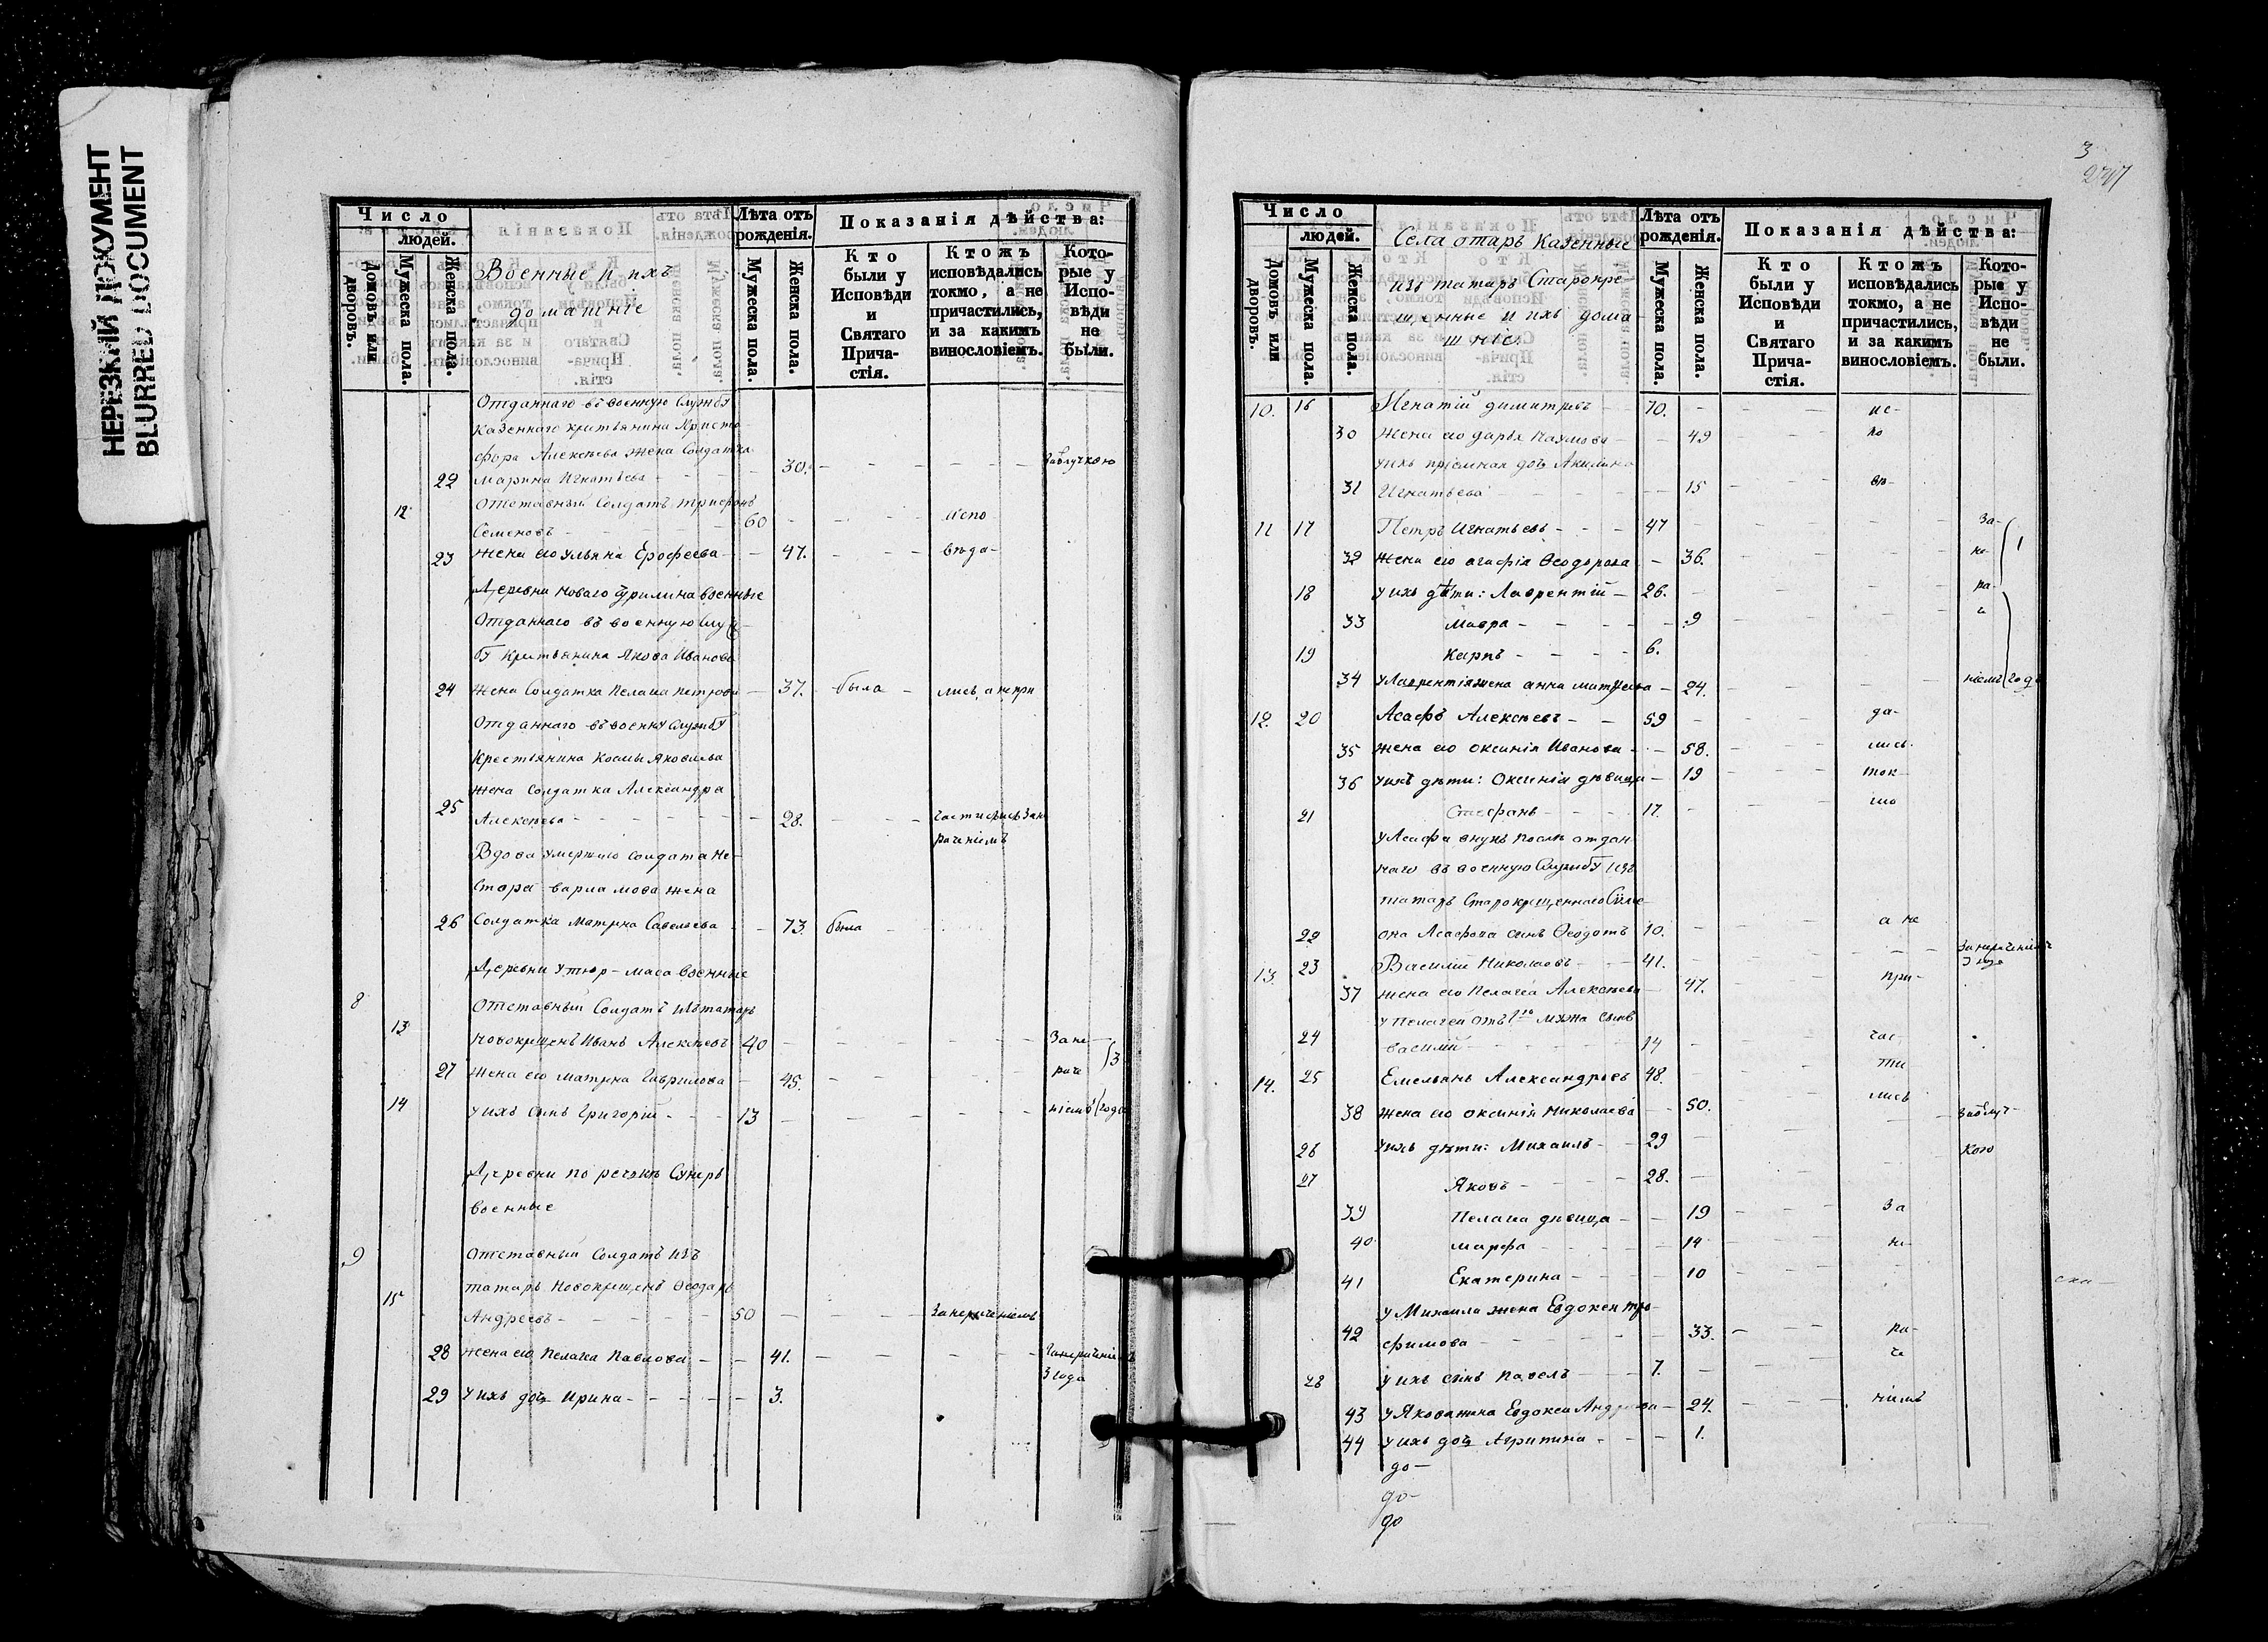 НЕРЕЗКИЙ ДОКУМЕНТ
BLURRED DOCUMENT
Число
людей.
Домовъ или дворовъ.
Мужеска пола.
Женска пола.
Военные и ихъ
домашніе
Лѣта отъ рожденія.
Мужеска пола.
Женска пола.
Показанія дѣйства:
Кто были у Исповѣди и Святаго Прича-стія.
Ктожъ исповѣдались токмо, а не причастились, и за какимъ винословіемъ.
Кото-рые у Испо-вѣди не были.
Отданнаго въ военную службу
казеннаго кртьянина Христо
фора Алексѣева жена солдатка
22 Марина Игнатьева - - 30. - - - - - заблучкою
12 Отставный солдатъ Трифонъ
Семеновъ - - - 60 - - - испо
23 жена его Ульяна Ерофеева - - 47. - - - вѣда-
Деревни Новаго военные
Отданнаго въ военную служ
бу кртьянина Якова Иванова
24 жена солдатка Пелагиа Петрова - 37. - была - лись, а непри
Отданнаго въ военну службу
Крестьянина Космы Яковлева
жена солдатка Александра
25 Алексѣева - - - 28. - - -
раченіемъ
Вдова умершаго солдата Не-
стора Варламова жена
26 солдатка Матрена Савельева - - 73. была -
Деревни Утяр-маса военные
8 Отставный солдатъ изъ татаръ
13 новокрещенъ Иванъ Алексѣевъ 40 - - - - - Зане-
27 жена его Матрена Гаврилова - 45. - - - раче 3
14 У ихъ сынъ Григорій - - - 13 - - - - - ніемъ года
Деревни по речкѣ Сунерь
военные
9 Отставный солдатъ изъ
татаръ новокрещенъ Ѳеодоръ
15 Андреевъ - - - - 50 - - - - занераченіемъ
28 жена его Пелагеа Павлова - - 41. - - - - - занераченіемъ
3 года
29 У ихъ дочь Ирина - - - - - 3.
3
Число
людей.
Домовъ или дворовъ.
Мужеска пола.
Женска пола.
Села отаръ казенные
изъ татаръ Старокре
щенные и ихъ дома
шніе.
Лѣта отъ рожденія.
Мужеска пола.
Женска пола.
Показанія дѣйства:
Кто были у Исповѣди и Святаго Прича-стія.
Ктожъ исповѣдались токмо, а не причастились, и за какимъ винословіемъ.
Кото-рые у Испо-вѣди не были.
10. 16 Игнатій Димитревъ - - 70. - - - ис-
30 жена его Дарья Наумова - - 49 - - по
у ихъ пріемная дочь Акилина
31 Игнатьева - - - - - 15 - - вѣ-
11 17 Петръ Игнатьевъ - - - 47 - - - За-
32 жена его Агафія Ѳеодорова - 36. - - - не- 1
18 у ихъ дѣти: Лаврентій - 26. - - - ра-
33 Мавра - - - - 9
19 Карпъ - - - - 6.
34 у Лаврентія жена Анна Матѵеева - 24. - - - ніемъ года
12. 20 Асафъ Алексѣевъ - - 59 - - - да-
35 жена его Оксинія Иванова - - 58. - - лись.
36 у ихъ дѣти: Оксинія дѣвица - 19 - - ток-
21 Стефанъ - - - 17. - - - мо
у Асафа внукъ послѣ отдан
наго въ военную службу изъ
татаръ Старокрещеннаго Симе
22 она Асафова сынъ Ѳеодотъ 10. - - - а не
13. 23 Василіи Николаевъ - - - 41. - - - - - занераченіемъ
3 года
37 жена его Пелагеа Алексѣева - 47. - - при-
у Пелагеи отъ 1го мужа сынъ
24 Василій - - - - 14 - - - час-
14. 25 Емельянъ Александровъ 48. - - - ти
38 жена его Оксинія Николаева - - 50. - - лись - - заблуч-
26 у ихъ дѣти: Михаилъ - - 29 - - - кою
27 Яковъ - - - - 28. -
39 Пелагиа дѣвица - - 19 - - за
40 Марфа - - - - 14 - - не-
41 Екатерина - - - 10 - -
у Михаила жена Евдокеа Тро-
42 фимова - - - - - 33. - - ра-
че
28 у ихъ сынъ Павелъ - - 7. - - -
43 у Якова жена Евдокеа Андреева - 24. - - ніемъ
44 у ихъ дочь Агрипина - - - 1.
до-
до-
до